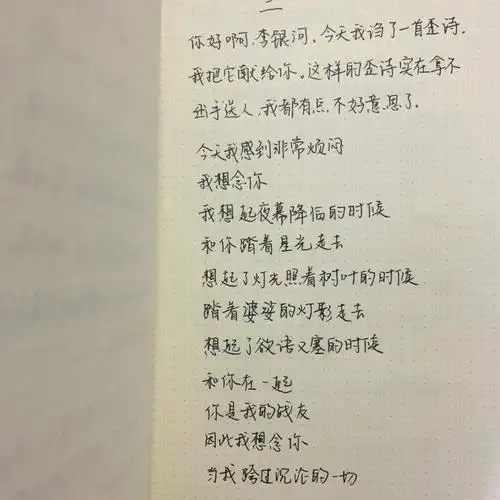 二
你好啊,李银河。今天我诌了一首歪诗。
我把它献给你。这样的歪诗实在拿不
出手送人,我都有点不好意思了。
今天我感到非常烦闷
我想念你
我想起夜幕降临的时候
和你踏着星光走去
想起了灯光照着树叶的时候
踏着婆娑的灯影走去
想起了欲语又塞的时候
和你在一起
你是我的战友
因此我想念你
当我跨过沉沦的一切